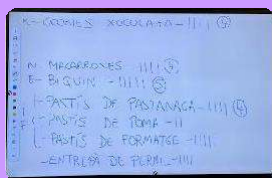 K- COOKIES XOCOLATA - |||| ④
N- MACARRONES - |||| ④
E- BIQUINI - ||||| ⑤
PASTÍS DE PASTANAGA - |||| ④
PASTÍS DE POMA - ||
PASTÍS DE FORMATGE - ||||
- ENTREPÀ DE PERNIL - ||||